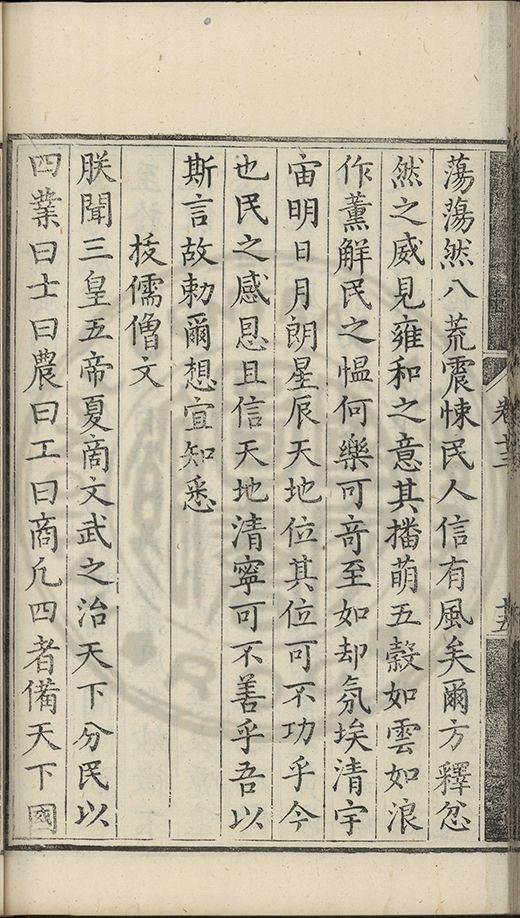 蕩蕩然八荒震悚民人信有風矣爾方釋忿
然之威見雍和之意其播萌五穀如雲如浪
作薰解民之愠何樂可竒至如却氛埃清宇
宙明日月朗星辰天地位其位可不功乎今
也民之感恩且信天地清寧可不善乎吾以
斯言故勅爾想宜知悉
拔儒僧文
朕聞三皇五帝夏商文武之治天下分民以
四業曰士曰農曰工曰商凢四者備天下國
卷十三
十五